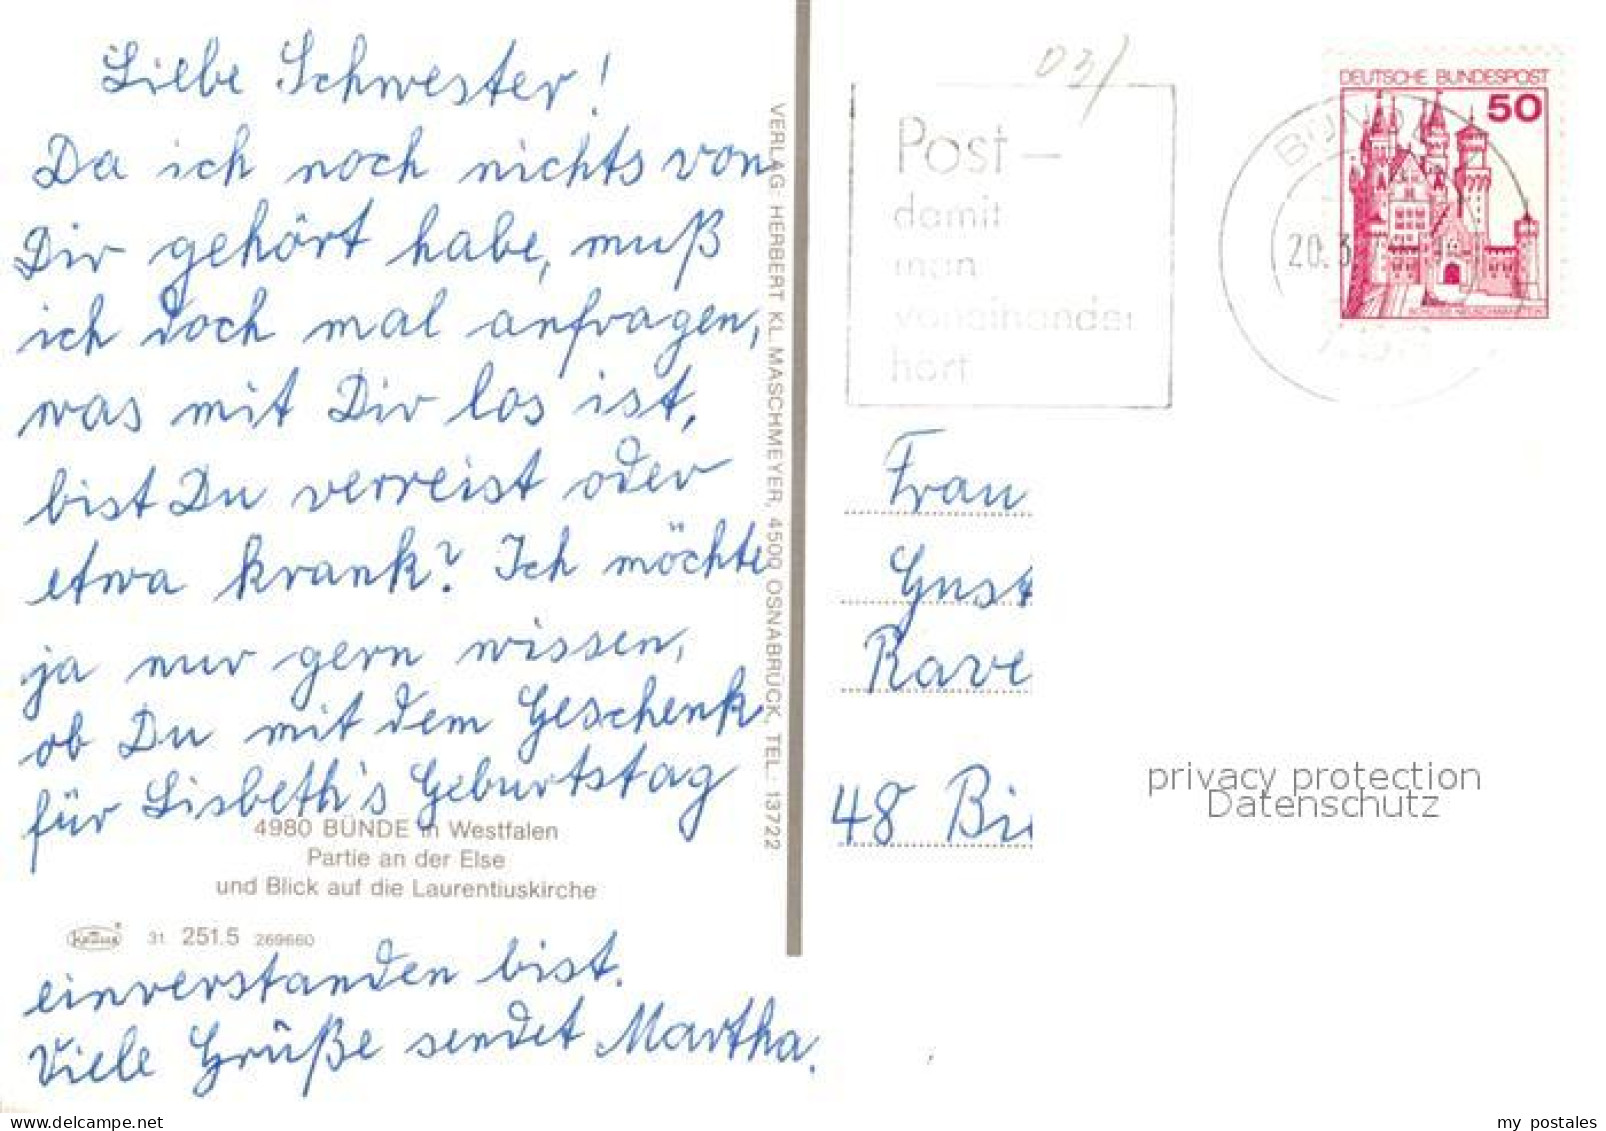 Liebe Schwester!
Da ich noch nichts von
Dir gehört habe, muß
ich doch mal anfragen,
was mit Dir los ist,
bist Du verreist oder
etwa krank? Ich möchte
ja nur gern wissen,
ob Du mit dem Geschenk
für Lisbeth's Geburtstag
4980 BÜNDE in Westfalen
Partie an der Else
und Blick auf die Laurentiuskirche
31. 251.5 269660
einverstanden bist.
Viele Grüße sendet Martha.
VERLAG HERBERT KL. MASCHMEYER, 4500 OSNABRÜCK, TEL.: 13722
03/
Post –
damit
man
voneinander
hört
DEUTSCHE BUNDESPOST
50
20.3
Frau
Gust
Rave
48 Bi
privacy protection
Datenschutz
my postales